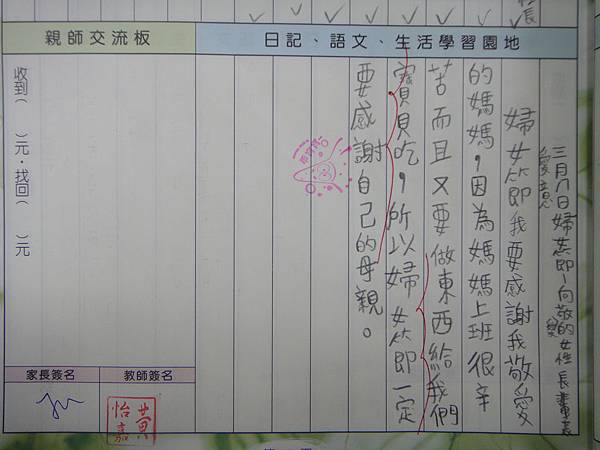 親師交流板
日記、語文、生活學習園地
三月八日婦女節-向敬愛的女性長輩表
愛意
婦女節即我要感謝我敬愛
的媽媽,因為媽媽上班很辛
苦而且又要做東西給我們
寶貝吃,所以婦女節即一定
要感謝自己的母親。
收到( )元,找回( )元
家長簽名
教師簽名
黃怡嘉